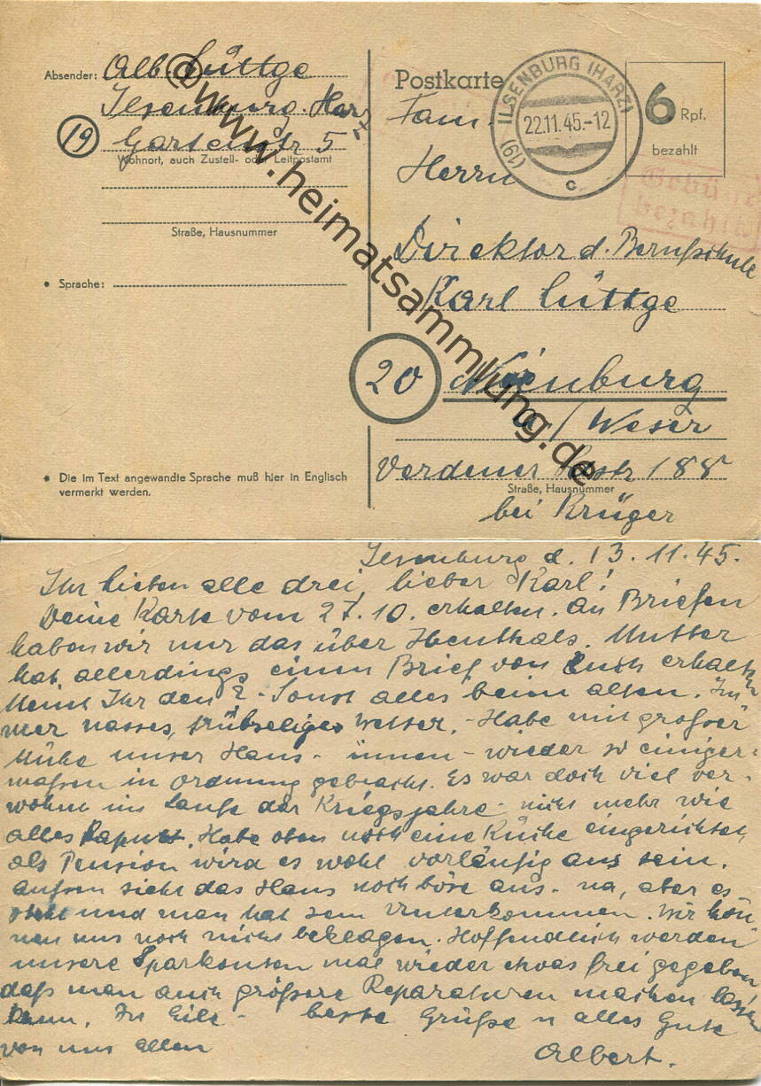 Absender: Alb. Lüttge
Ilsenburg Harz
(19) Gartenstr 5
Wohnort, auch Zustell- oder Leitpostamt
Straße, Hausnummer
• Sprache:
• Die im Text angewandte Sprache muß hier in Englisch
vermerkt werden.
Postkarte
(19) ILSENBURG (HARZ)
22.11.45.-12
c
6 Rpf.
bezahlt
Gebühr
bezahlt
Fam.
Herrn
Direktor d. Berufsschule
Karl Lüttge
20 Nienburg
a/Weser
Verdener Str. 188
Straße, Hausnummer
bei Krüger
@www.heimatsammlung.de
Ilsenburg d. 13.11.45.
Ihr lieben alle drei, lieber Karl!
Deine Karte vom 27.10. erhalten. An Briefen
haben wir nur das über Henthals. Mutter
hat allerdings einen Brief von Euch erhalten
Meint Ihr den? - Sonst alles beim alten. Im-
mer nasses, trübseliges Wetter. - Habe mit großer
Mühe unser Haus - innen - wieder so einiger-
maßen in Ordnung gebracht. Es war doch viel ver-
wohnt im Laufe der Kriegsjahre - nicht mehr wie
alles kaputt. Habe oben noch eine Küche eingerichtet
als Pension wird es wohl vorläufig aus sein.
Außen sieht das Haus noch böse aus - na, aber es
steht und man hat sein Unterkommen. Wir kön-
nen uns noch nicht beklagen. Hoffendlich werden
unsere Sparkonten mal wieder etwas frei gegeben
daß man auch größere Reparaturen machen lassen
kann. In Eile - beste Grüße u alles Gute
von uns allen
Albert.